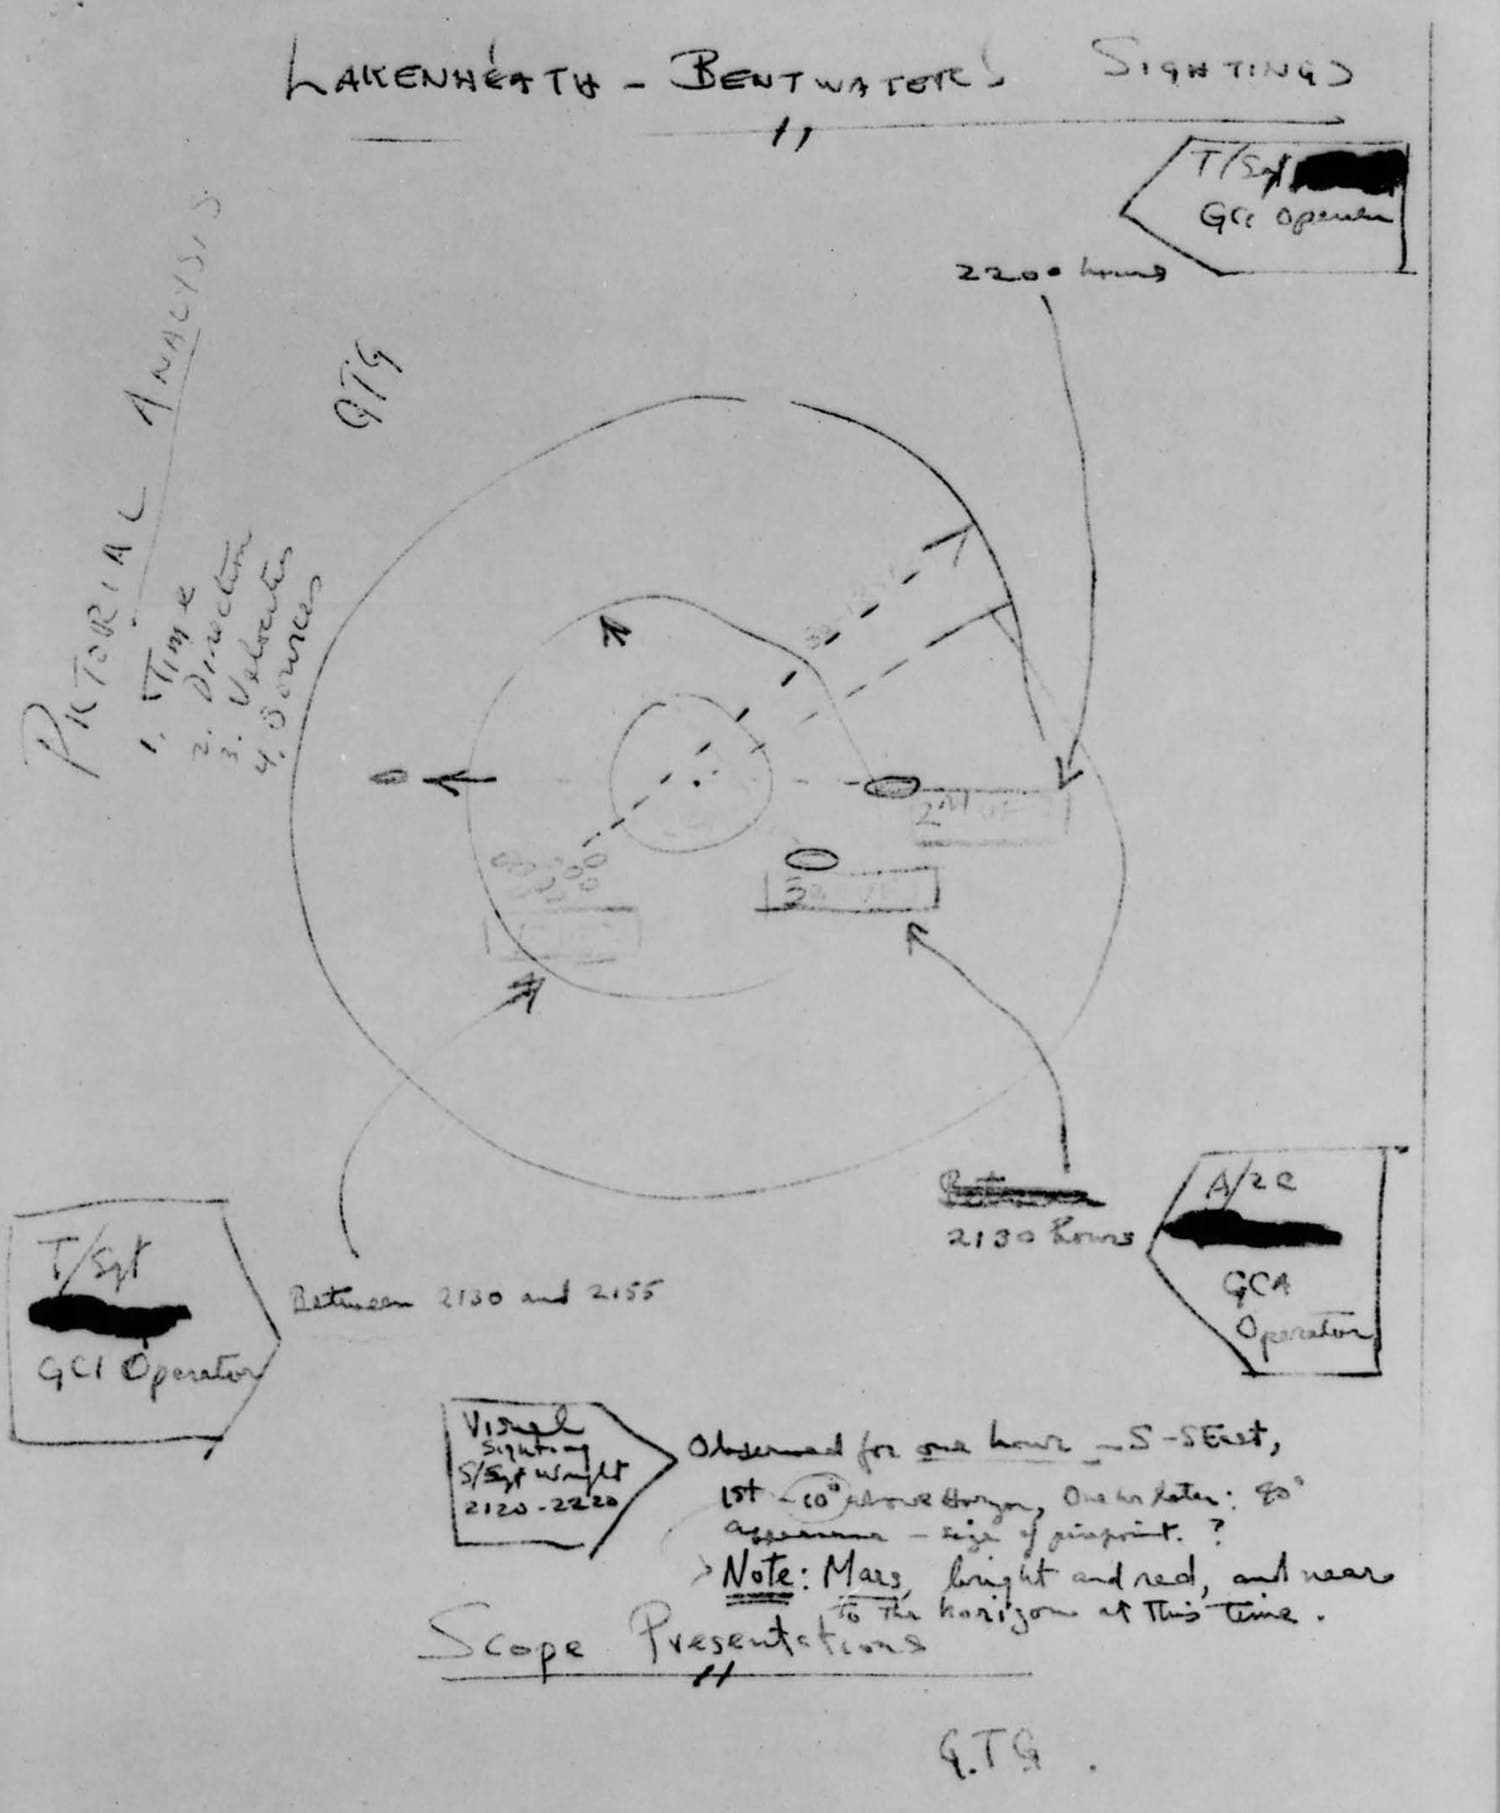 LAKENHEATH - BENTWATERS SIGHTINGS
T/Sgt
GCI Operator
2200 hours
PICTORIAL ANALYSIS
1. Time
2. Direction
3. Velocities
4. Sources
GTG
2nd
3
T/Sgt
GCI Operator
Between 2130 and 2155
Between
2130 hours
A/2C
GCA
Operator
Visual
Sighting
S/Sgt Wright
2120-2220
Observed for one hour - S-SEast,
1st - 10° above Horizon, One hr later: 
appearance - size of pinpoint. ?
Note: Mars, bright and red, and near
to the horizon at this time.
Scope Presentations
G.T.G.